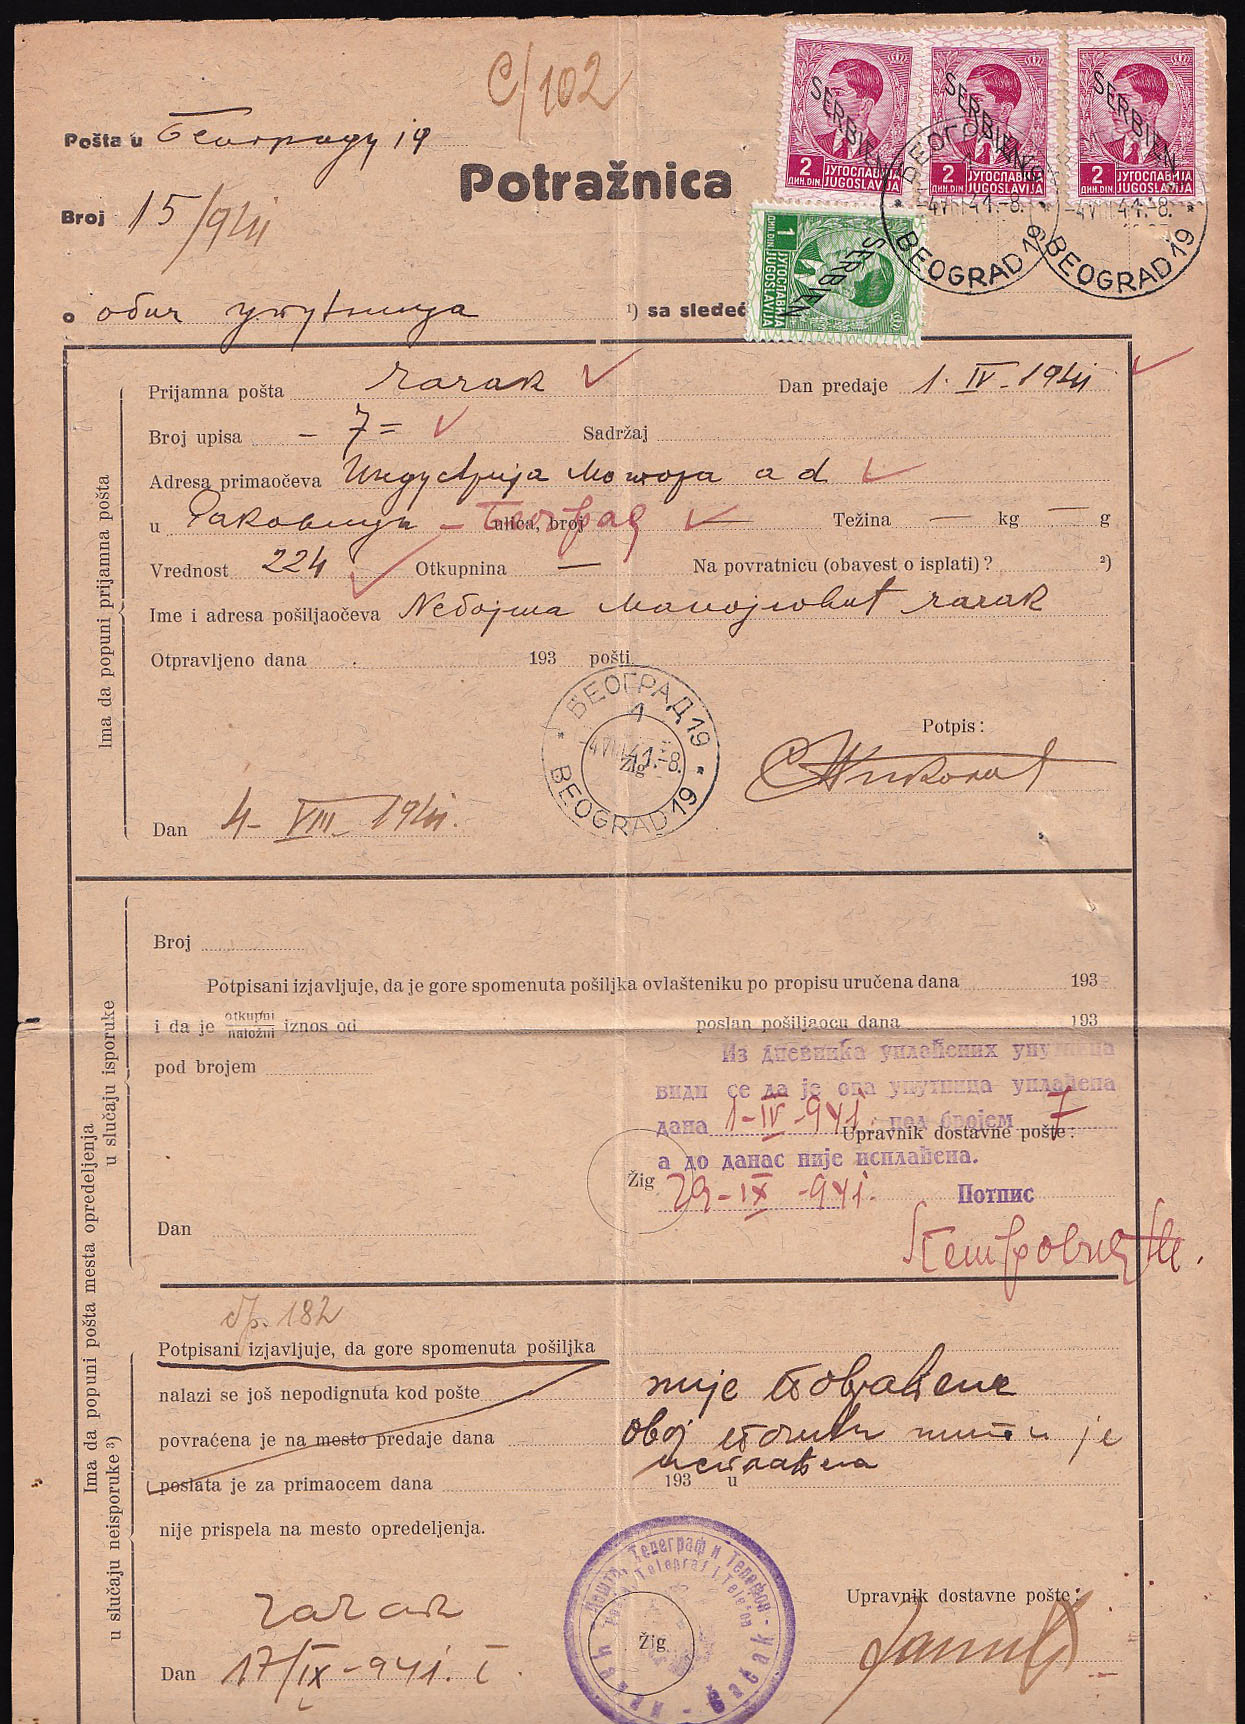 C/102
Pošta u Београду 19
Potražnica
Broj 15/941
SERBIEN
2 ДИН. DIN ЈУГОСЛАВИЈА JUGOSLAVIJA
SERBIEN
2 ДИН. DIN ЈУГОСЛАВИЈА JUGOSLAVIJA
SERBIEN
2 ДИН. DIN ЈУГОСЛАВИЈА JUGOSLAVIJA
SERBIEN
1 ДИН. DIN ЈУГОСЛАВИЈА JUGOSLAVIJA
БЕОГРАД 19
4 VIII 41.-8.
BEOGRAD 19
-4 VIII 41.-8.
BEOGRAD 19
о обич упутница ¹) sa sledeć
Ima da popuni prijamna pošta
Prijamna pošta Чачак Dan predaje 1. IV - 1941
Broj upisa - 7 = Sadržaj
Adresa primaočeva Индустрија Мотора а d
u Раковици - Београд ulica, broj — Težina — kg — g
Vrednost 224 Otkupnina — Na povratnicu (obavest o isplati) ? ²)
Ime i adresa pošiljaočeva Небојша Манојловић Чачак
Otpravljeno dana 193 pošti
БЕОГРАД 19
1
4 VIII 41.-8.
Žig
BEOGRAD 19
Potpis :
Dan 4 - VIII - 1941.
Ima da popuni pošta mesta opredeljenja
u slučaju isporuke
Broj
Potpisani izjavljuje, da je gore spomenuta pošiljka ovlašteniku po propisu uručena dana 193
i da je otkupni naložni iznos od poslan pošiljaocu dana 193
pod brojem
Из дневника уплаћених упутница
види се да је ова упутница уплаћена
дана 1-IV-941. под бројем 7
Upravnik dostavne pošte :
а до данас није исплаћена.
Žig
29-IX-941. Потпис
Dan
u slučaju neisporuke ³)
бр. 182
Potpisani izjavljuje, da gore spomenuta pošiljka
nalazi se još nepodignuta kod pošte није повраћена
povraćena je na mesto predaje dana овој пошти нити је
исплаћена
poslata je za primaocem dana 193 u
nije prispela na mesto opredeljenja.
Пошта, Телеграф и Телефон -
Pošta, Telegraf i Telefon
Žig
Čačak
Upravnik dostavne pošte :
Чачак
Dan 17/IX-941. г.